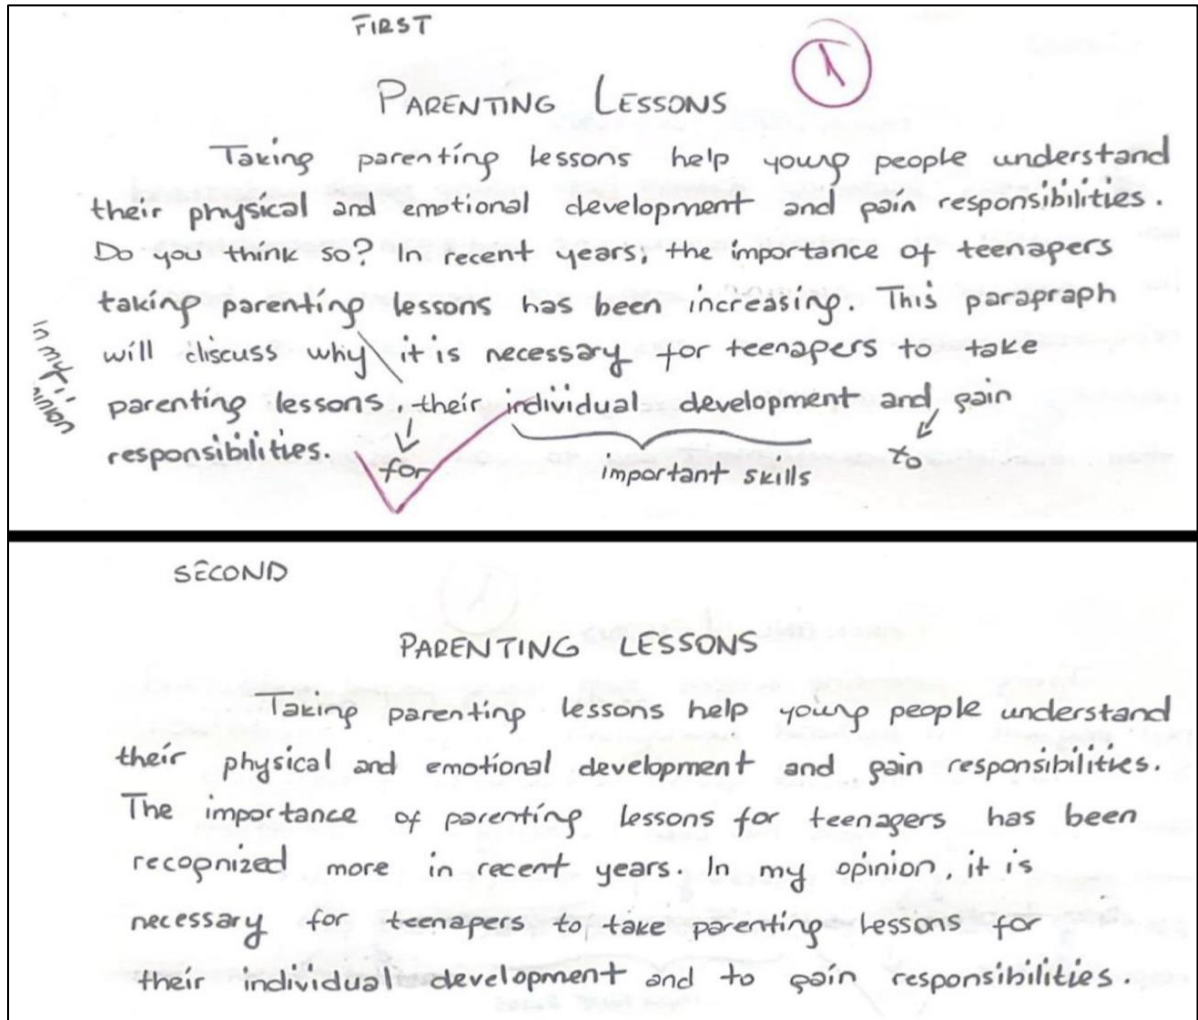 FIRST
1
PARENTING LESSONS
Taking parenting lessons help young people understand
their physical and emotional development and gain responsibilities.
Do you think so? In recent years, the importance of teenagers
taking parenting lessons has been increasing. This paragraph
will discuss why it is necessary for teenagers to take
in my
parenting lessons, their individual development and gain
responsibilities.
for
important skills
to
SECOND
PARENTING LESSONS
Taking parenting lessons help young people understand
their physical and emotional development and gain responsibilities.
The importance of parenting lessons for teenagers has been
recognized more in recent years. In my opinion, it is
necessary for teenagers to take parenting lessons for
their individual development and to gain responsibilities.